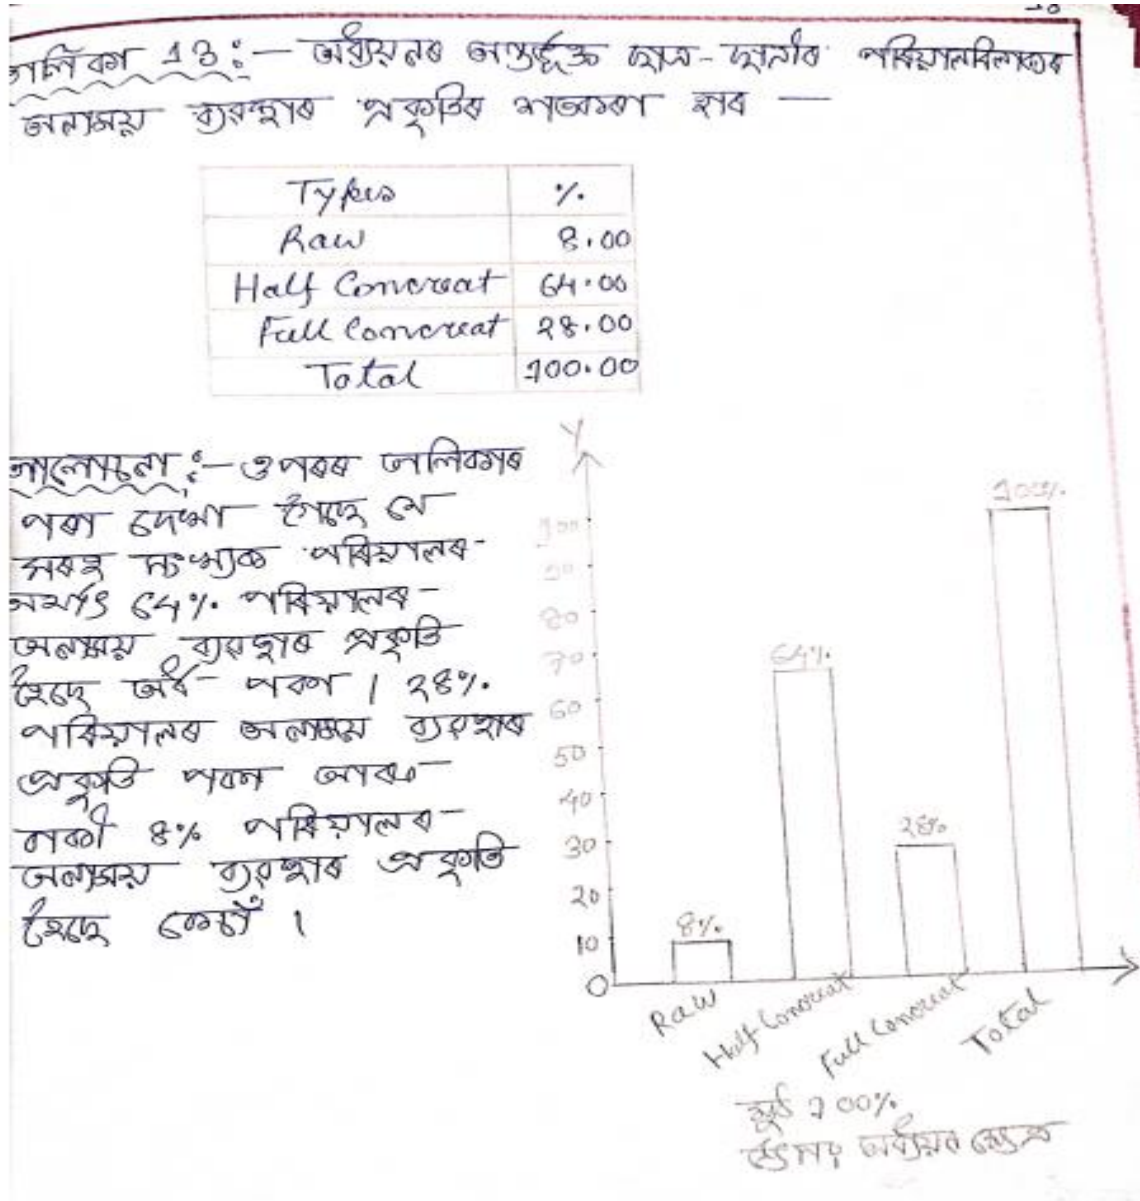 তালিকা 13 :— অধ্যয়নৰ অন্তৰ্ভূক্ত ছাত্ৰ-ছাত্ৰীৰ পৰিয়ালবিলাকৰ
জলাময় ব্যৱস্থাৰ প্ৰকৃতিৰ শতকৰা হাৰ —
Types %
Raw 8.00
Half Concreat 64.00
Full Concreat 28.00
Total 100.00
আলোচনা :— ওপৰৰ তালিকাৰ
পৰা দেখা গৈছে যে
সৰহ সংখ্যক পৰিয়ালৰ
অৰ্থাৎ 64% পৰিয়ালৰ
ব্যৱস্থাৰ প্ৰকৃতি
হৈছে অৰ্ধ পকা । 28%
পৰিয়ালৰ ব্যৱস্থাৰ
প্ৰকৃতি পকা আৰু
বাকী 8% পৰিয়ালৰ
ব্যৱস্থাৰ প্ৰকৃতি
হৈছে কেচাঁ ।
Y
100
90
80
70
60
50
40
30
20
10
0
8%
64%
28%
100%
Raw
Half Concreat
Full Concreat
Total
মুঠ 100%
উৎসঃ অধ্যয়ন ক্ষেত্ৰ